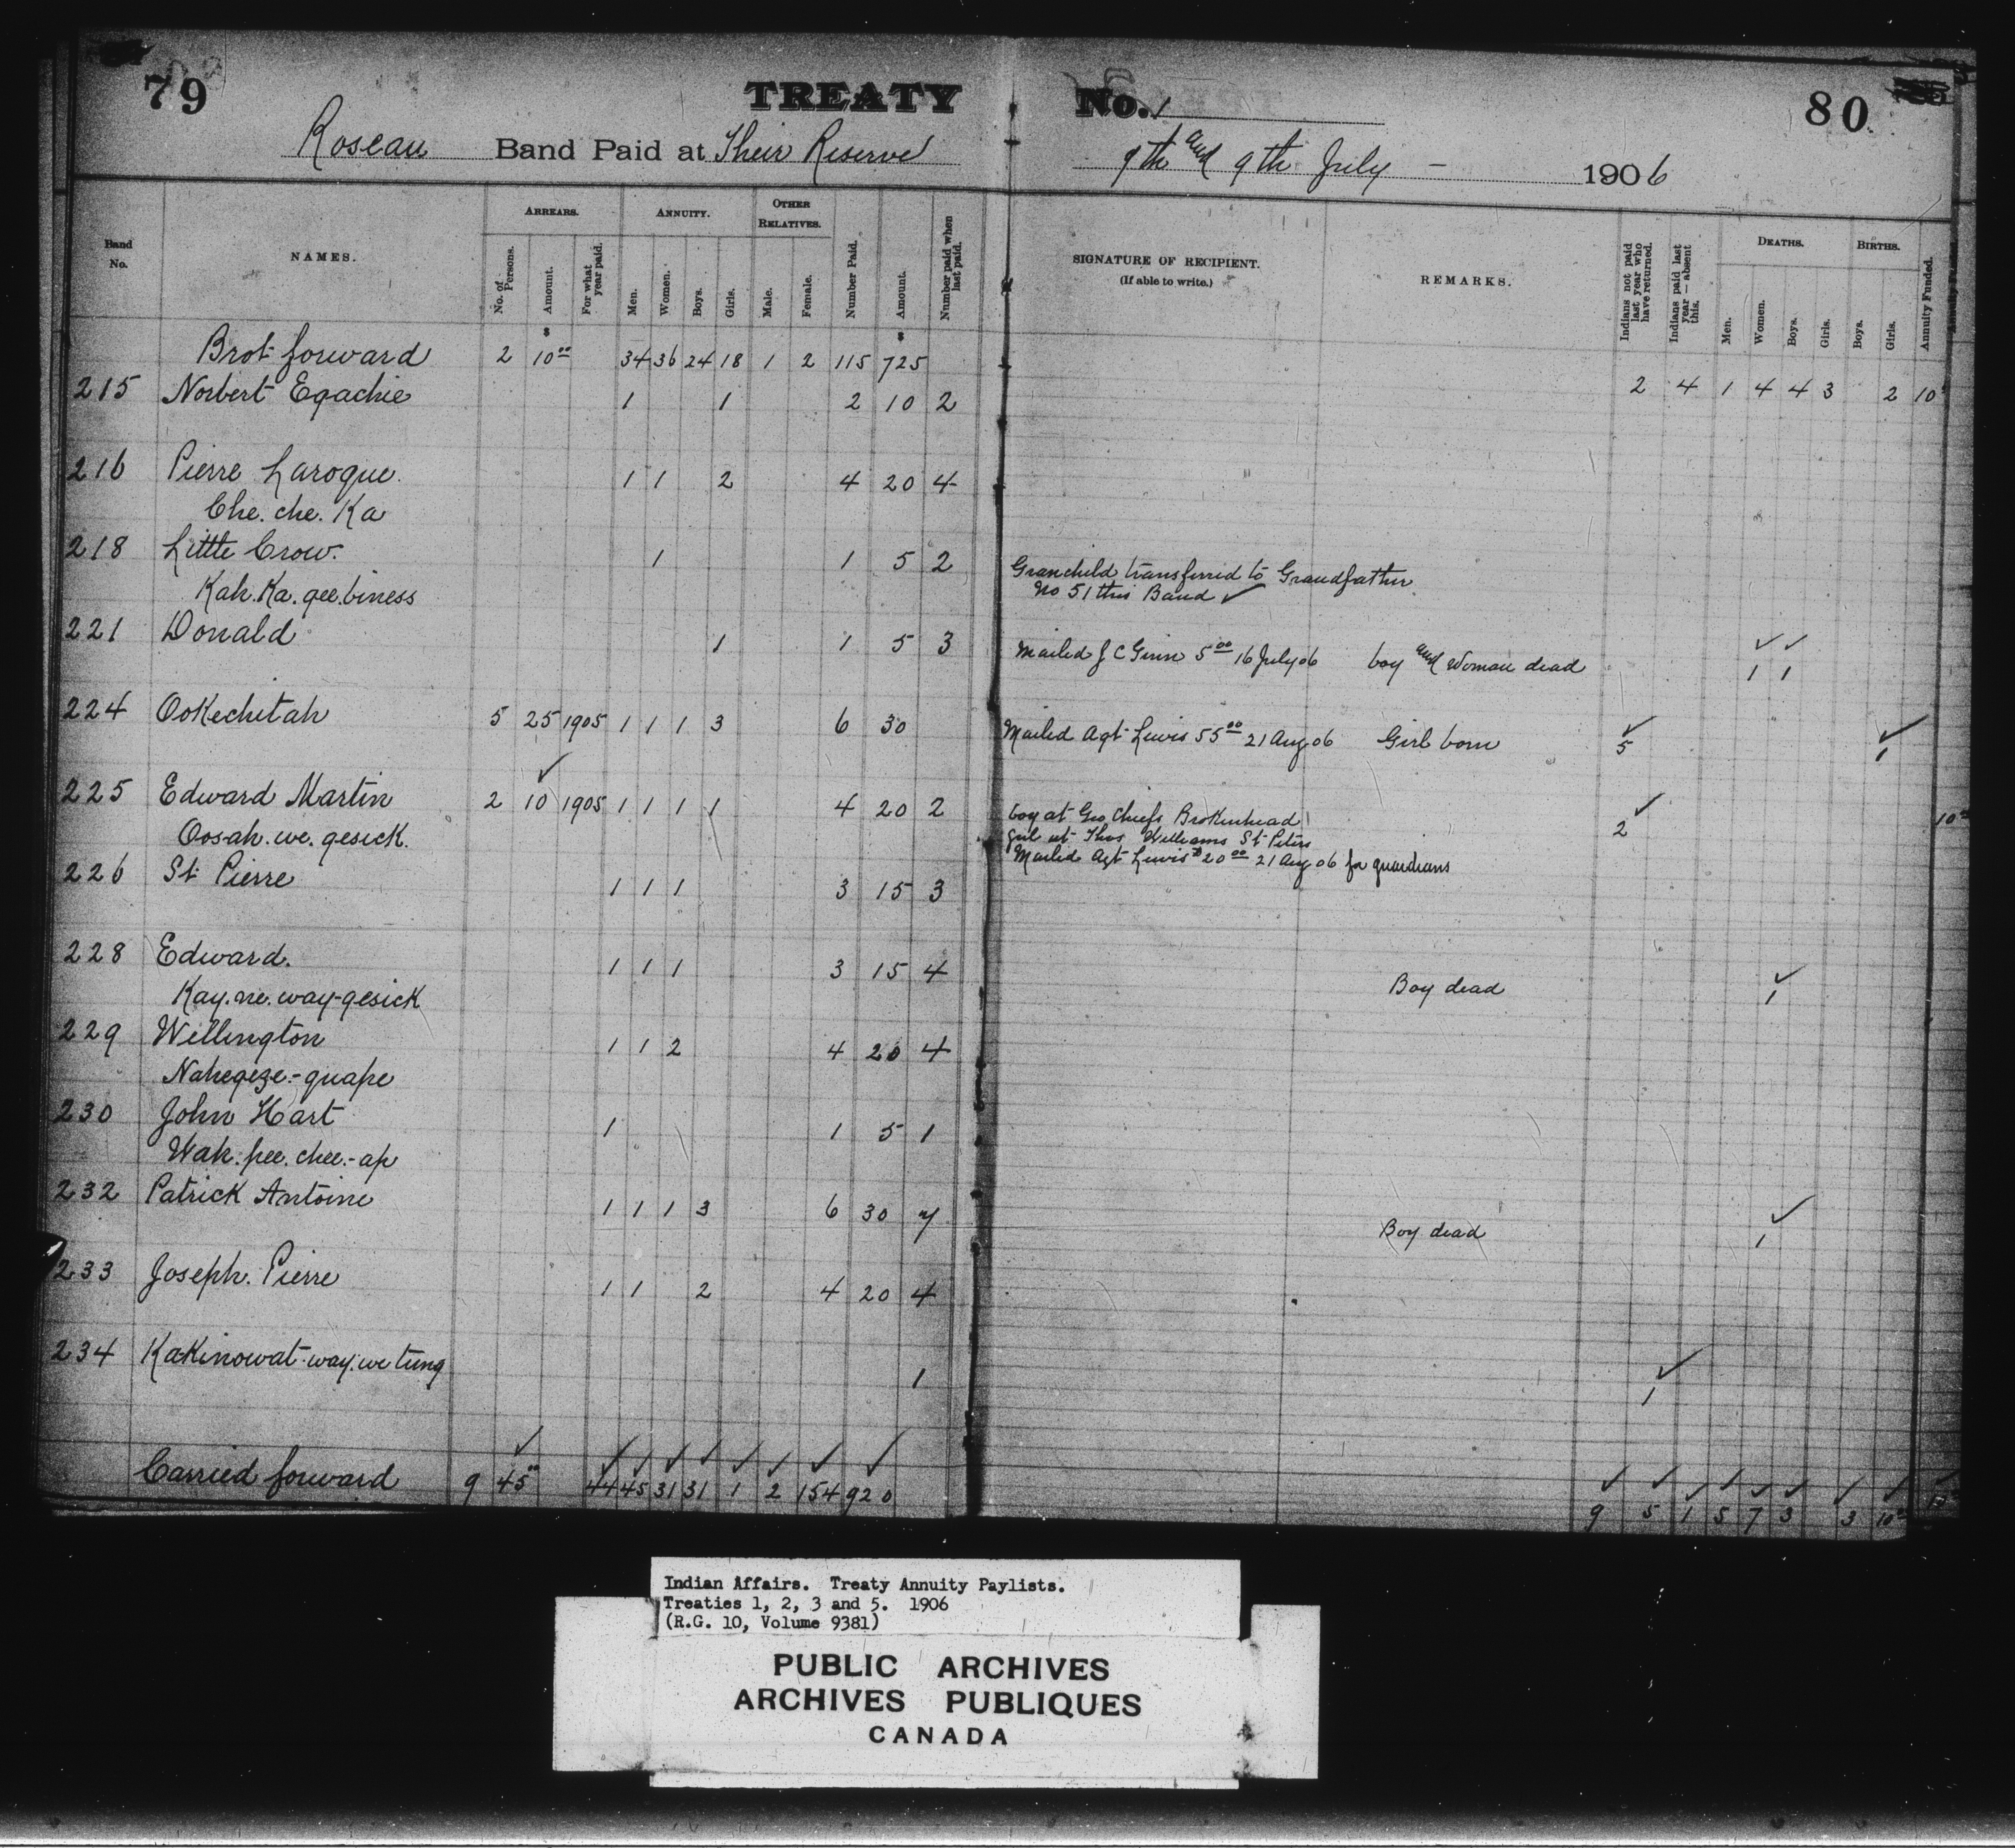 79 TREATY No. 1 80
Roseau Band Paid at Their Reserve 7th and 9th July - 1906
Band No. NAMES. ARREARS. ANNUITY. OTHER RELATIVES. Number Paid. Amount. Number paid when last paid. SIGNATURE OF RECIPIENT. (If able to write.) REMARKS. Indians not paid last year who have returned. Indians paid last year — absent this. DEATHS. BIRTHS. Annuity Funded.
No. of Persons. Amount. For what year paid. Men. Women. Boys. Girls. Male. Female. Men. Women. Boys. Girls. Boys. Girls.
$ $
Brot forward 2 10 00 34 36 24 18 1 2 115 725 2 4 1 4 4 3 2 10
215 Norbert Egachie 1 1 2 10 2
216 Pierre Laroque 1 1 2 4 20 4
Che. che. Ka
218 Little Crow. 1 1 5 2 Granchild transferred to Grandfather
Kah. Ka. gee. biness No 51 this Band ✓
221 Donald 1 1 5 3 Mailed J C Ginn 5 00 16 July 06 boy and Woman dead ✓ ✓ 1 1
224 OoKechitah 5 25 1905 1 1 1 3 6 30 Mailed Agt Lewis 55 00 21 Aug 06 Girl born ✓ 5 ✓ 1
225 Edward Martin 2 10 ✓ 1905 1 1 1 1 4 20 2 boy at Geo Chiefs Brokenhead ✓ 2 10
Oos-ah. we. gesick. girl at Thos Williams St Peters
Mailed Agt Lewis $20 00 21 Aug 06 for guardians
226 St. Pierre 1 1 1 3 15 3
228 Edward. 1 1 1 3 15 4 Boy dead ✓ 1
Kay. ne. way-gesick
229 Wellington 1 1 2 4 20 4
Nahegeze-guape
230 John Hart 1 1 5 1
Wah. pee. chee.-ap
232 Patrick Antoine 1 1 1 3 6 30 7 Boy dead ✓ 1
233 Joseph. Pierre 1 1 2 4 20 4
234 KaKinowat-way. we tung 1 ✓ 1
Carried forward 9 45 00 44 45 31 31 1 2 154 920 9 5 1 5 7 3 3 10
Indian Affairs. Treaty Annuity Paylists.
Treaties 1, 2, 3 and 5. 1906
(R.G. 10, Volume 9381)
PUBLIC ARCHIVES
ARCHIVES PUBLIQUES
CANADA